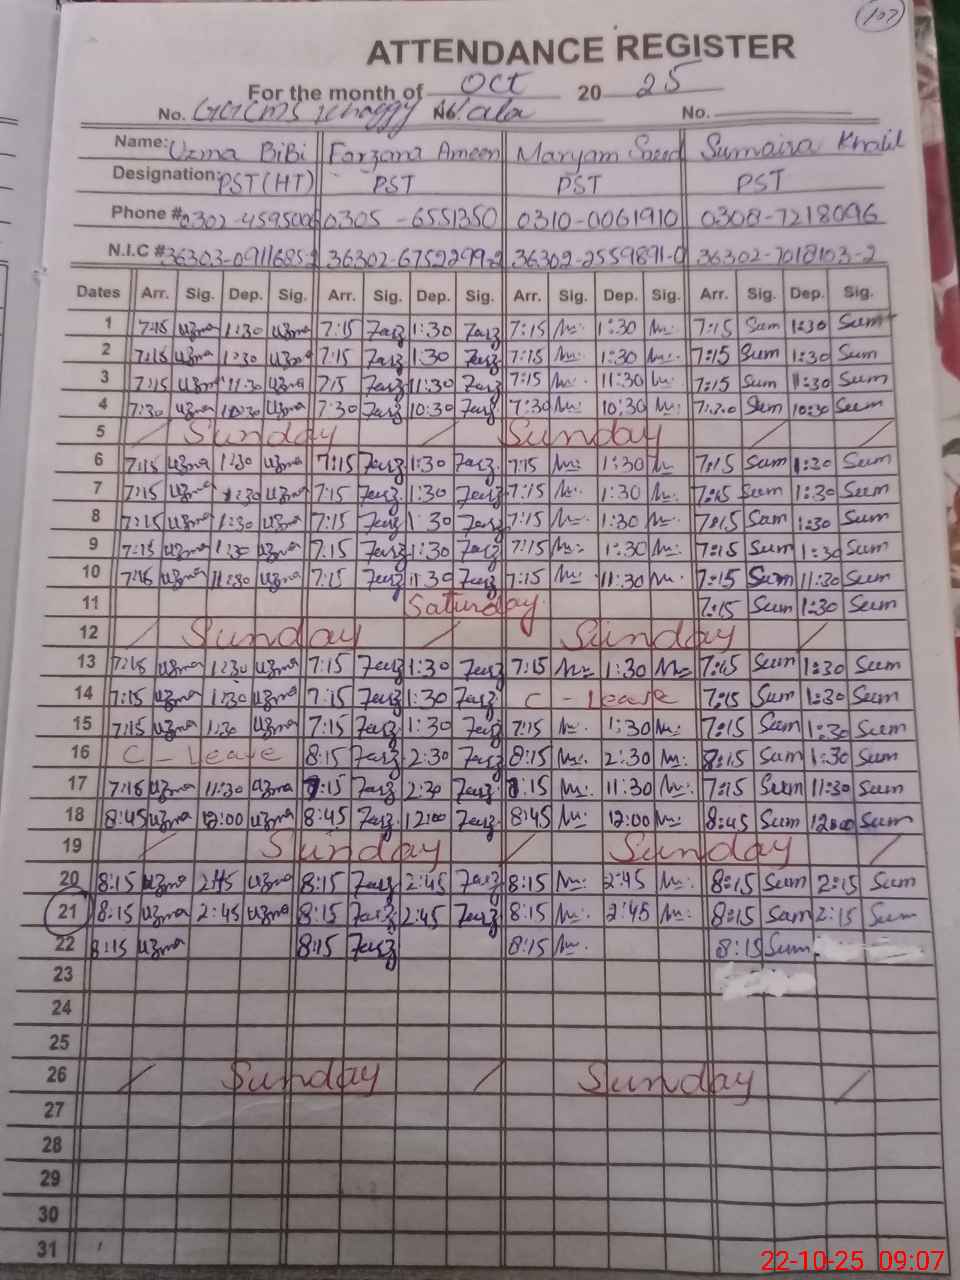 107
ATTENDANCE REGISTER
For the month of Oct 20 25
No. No. No.
Name: Uzma BiBi Farzana Ameen Maryam Saeed Sumaira Khalil
Designation: PST(HT) PST PST PST
Phone # 0302-4595006 0305-6551350 0310-0061910 0308-7218096
N.I.C # 36303-0911685-2 36302-6752299-2 36302-2559891-0 36302-7018103-2
Dates Arr. Sig. Dep. Sig. Arr. Sig. Dep. Sig. Arr. Sig. Dep. Sig. Arr. Sig. Dep. Sig.
1 7:15 Uzma 1:30 Uzma 7:15 Farz 1:30 Farz 7:15 M: 1:30 M: 7:15 Sum 1:30 Sum
2 7:15 Uzma 1:30 Uzma 7:15 Farz 1:30 Farz 7:15 M: 1:30 M: 7:15 Sum 1:30 Sum
3 7:15 Uzma 11:30 Uzma 7:15 Farz 11:30 Farz 7:15 M: 11:30 M: 7:15 Sum 11:30 Sum
4 7:30 Uzma 10:30 Uzma 7:30 Farz 10:30 Farz 7:30 M: 10:30 M: Sum 10:30 Sum
5 / Sunday / Sunday / /
6 7:15 Uzma 1:30 Uzma 7:15 Farz 1:30 Farz 7:15 M: 1:30 M: 7:15 Sum 1:30 Sum
7 7:15 Uzma 1:30 Uzma 7:15 Farz 1:30 Farz 7:15 M: 1:30 M: 7:15 Sum 1:30 Sum
8 7:15 Uzma 1:30 Uzma 7:15 Farz 1:30 Farz 7:15 M: 1:30 M: 7:15 Sum 1:30 Sum
9 7:15 Uzma 1:30 Uzma 7:15 Farz 1:30 Farz 7:15 M: 1:30 M: 7:15 Sum 1:30 Sum
10 7:15 Uzma 11:30 Uzma 7:15 Farz 11:30 Farz 7:15 M: 11:30 M: 7:15 Sum 11:30 Sum
11 Saturday 7:15 Sum 1:30 Sum
12 / Sunday / Sunday /
13 7:15 Uzma 1:30 Uzma 7:15 Farz 1:30 Farz 7:15 M: 1:30 M: 7:15 Sum 1:30 Sum
14 7:15 Uzma 1:30 Uzma 7:15 Farz 1:30 Farz C - Leave 7:15 Sum 1:30 Sum
15 7:15 Uzma 1:30 Uzma 7:15 Farz 1:30 Farz 7:15 M: 1:30 M: 7:15 Sum 1:30 Sum
16 C - Leave 8:15 Farz 2:30 Farz 8:15 M: 2:30 M: 8:15 Sum 1:30 Sum
17 7:15 Uzma 11:30 Uzma Farz 2:30 Farz 8:15 M: 11:30 M: 7:15 Sum 11:30 Sum
18 8:45 Uzma 12:00 Uzma 8:45 Farz 12:00 Farz 8:45 M: 12:00 M: 8:45 Sum 12:00 Sum
19 / Sunday / Sunday /
20 8:15 Uzma 2:45 Uzma 8:15 Farz 2:45 Farz 8:15 M: 2:45 M: 8:15 Sum 2:15 Sum
21 8:15 Uzma 2:45 Uzma 8:15 Farz 2:45 Farz 8:15 M: 2:45 M: 8:15 Sum 2:15 Sum
22 8:15 Uzma 8:15 Farz 8:15 M. 8:15 Sum
23
24
25
26 / Sunday / Sunday /
27
28
29
30
31
22-10-25 09:07